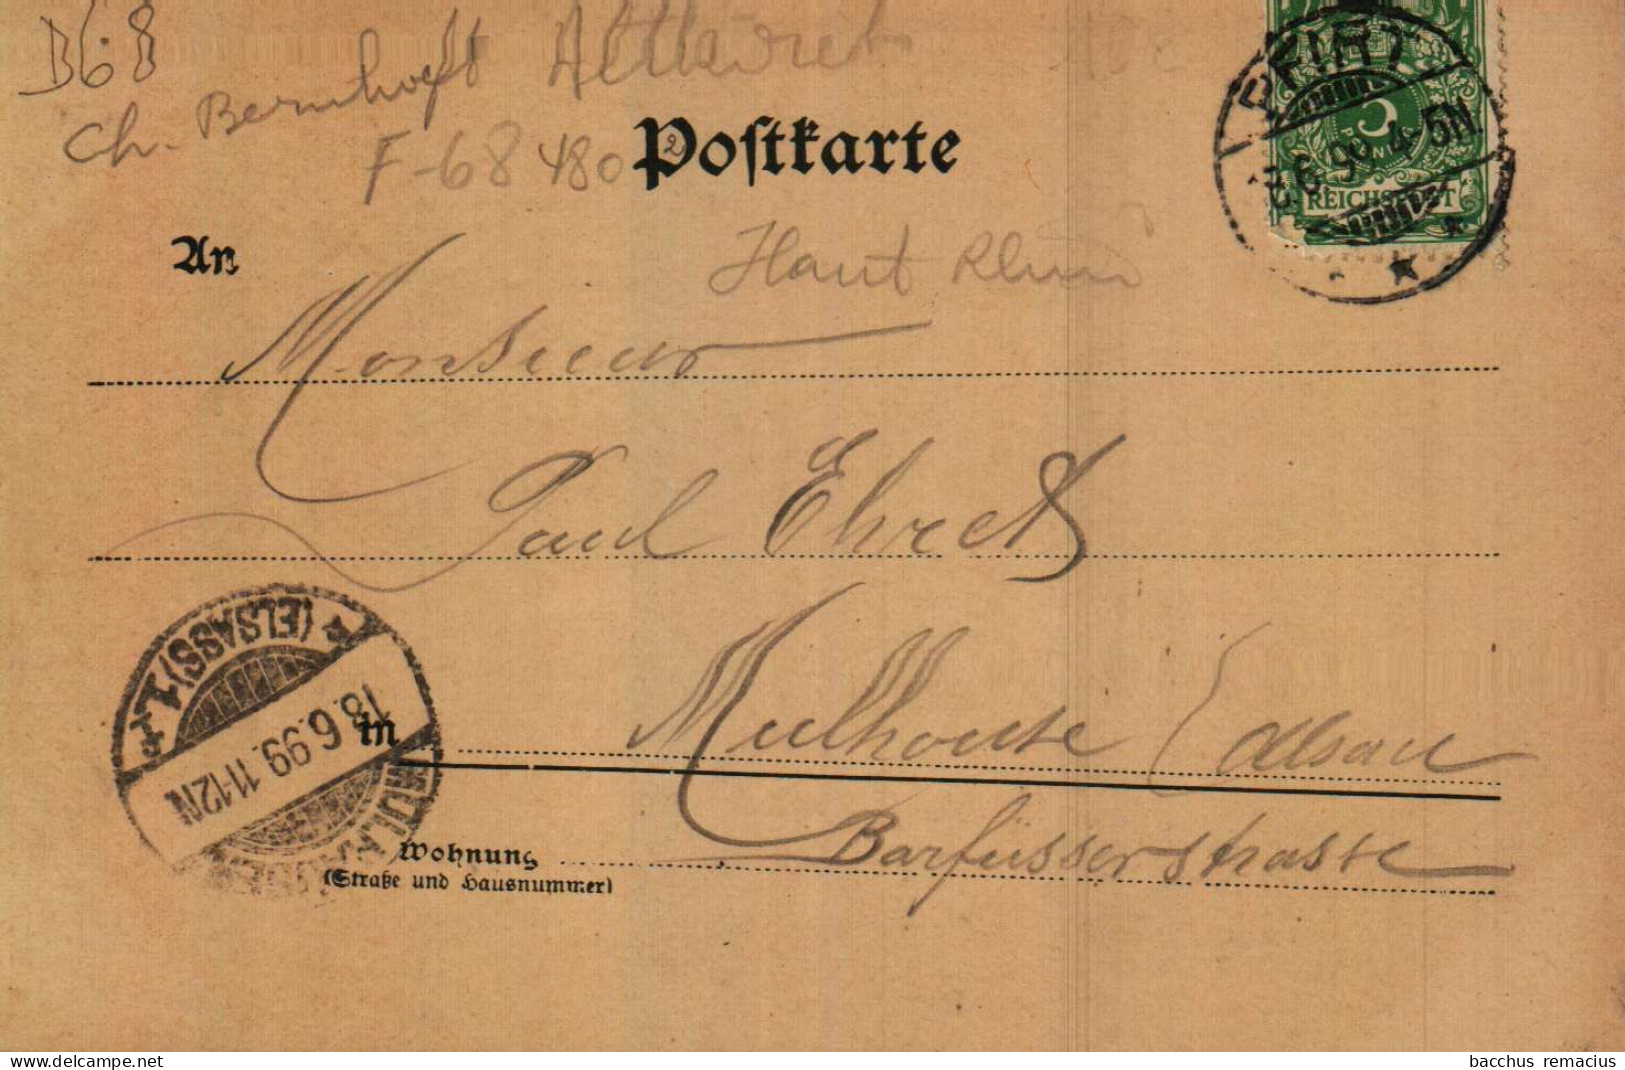 B68
Ch. Bernhoeft Altkirch
F-68480
Postkarte
PFIRT
6.99. 4-5N.
5
REICHSPOST
An
Haut Rhin
Monsieur
Paul Ehret
(ELSASS) 1. P.P.
18.6.99. 11-12N
MÜLHAUSEN
in Mulhouse (Alsace
Wohnung Barfüsserstrasse
(Straße und Hausnummer)
www.delcampe.net
bacchus remacius